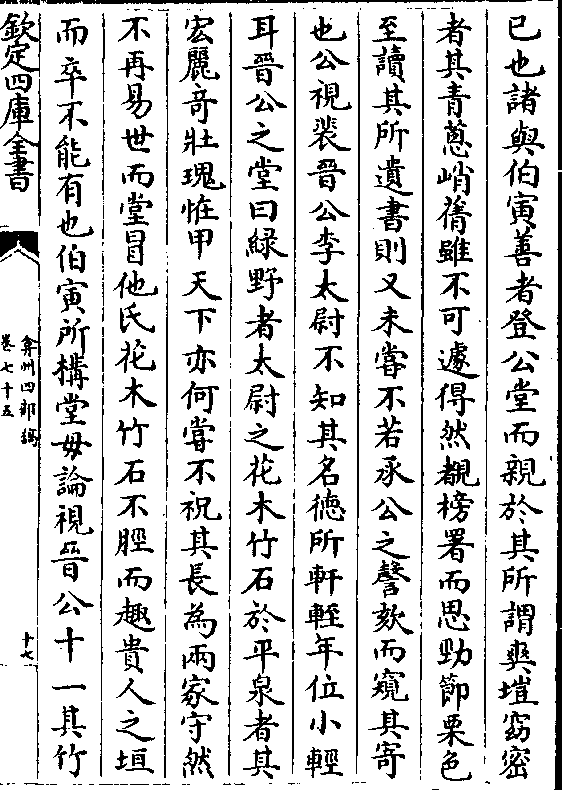 已也諸與伯寅善者登公堂而親於其所謂爽塏窈密
者其青蔥峭蒨雖不可遽得然覩榜署而思勁節栗色
至讀其所遺書則又未嘗不若承公之謦欬而窺其寄
也公視裴晉公李太尉不知其名德所軒輊年位小輕
耳晉公之堂曰緑野者太尉之花木竹石於平泉者其
宏麗竒壯瑰恠甲天下亦何嘗不祝其長為兩家守然
不再易世而堂冒他氏花木竹石不脛而趣貴人之垣
而卒不能有也伯寅所構堂毋論視晉公十一其竹
欽定四庫全書
弇州四部稿
卷七十五
十七